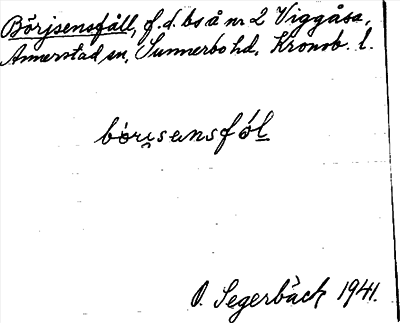 Börjsensfäll, f.d. bs å nr 2 Viggåsa,
Annerstad sn, Sunnerbo hd, Kronob. l.
börisensfól
O. Segerbäck 1941.